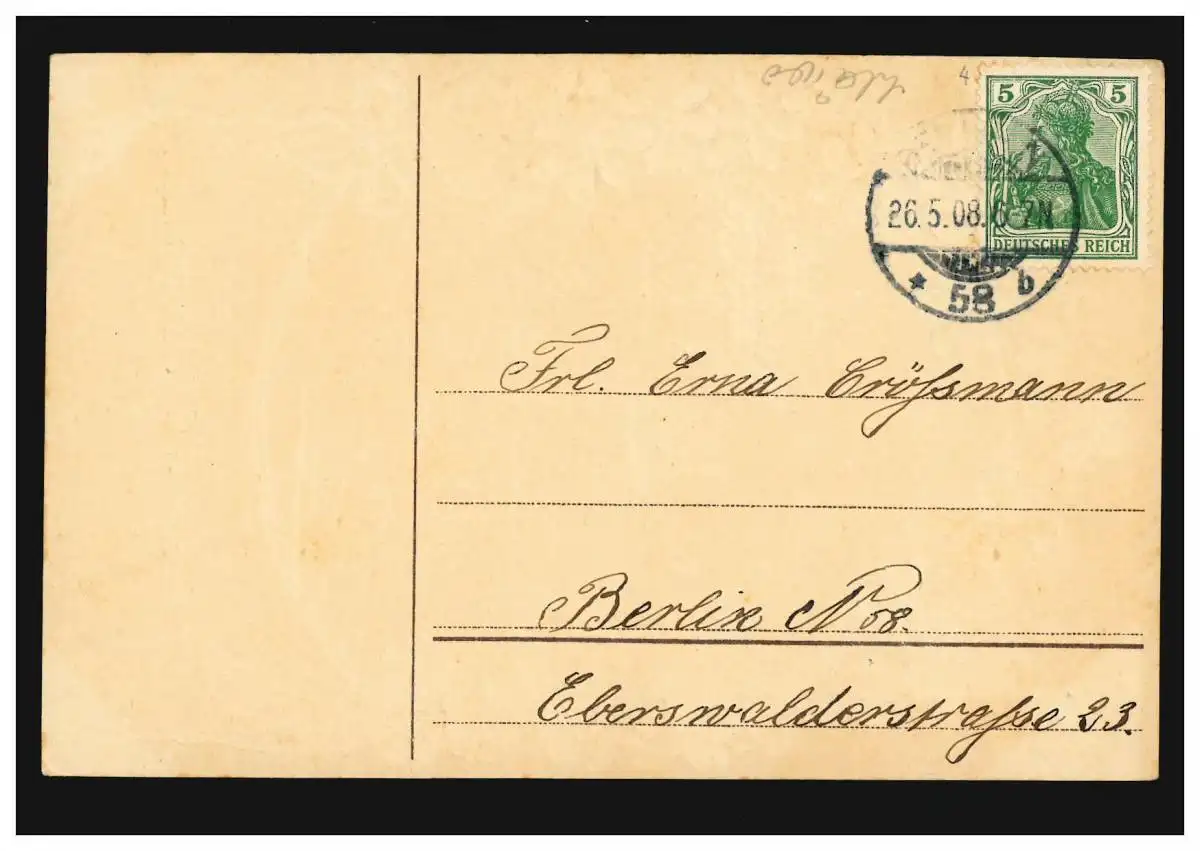 4
5 5
DEUTSCHES REICH
26.5.08.6-7N
* 58 b
Frl. Erna Crößmann
Berlin N 58.
Eberswalderstraße 23.